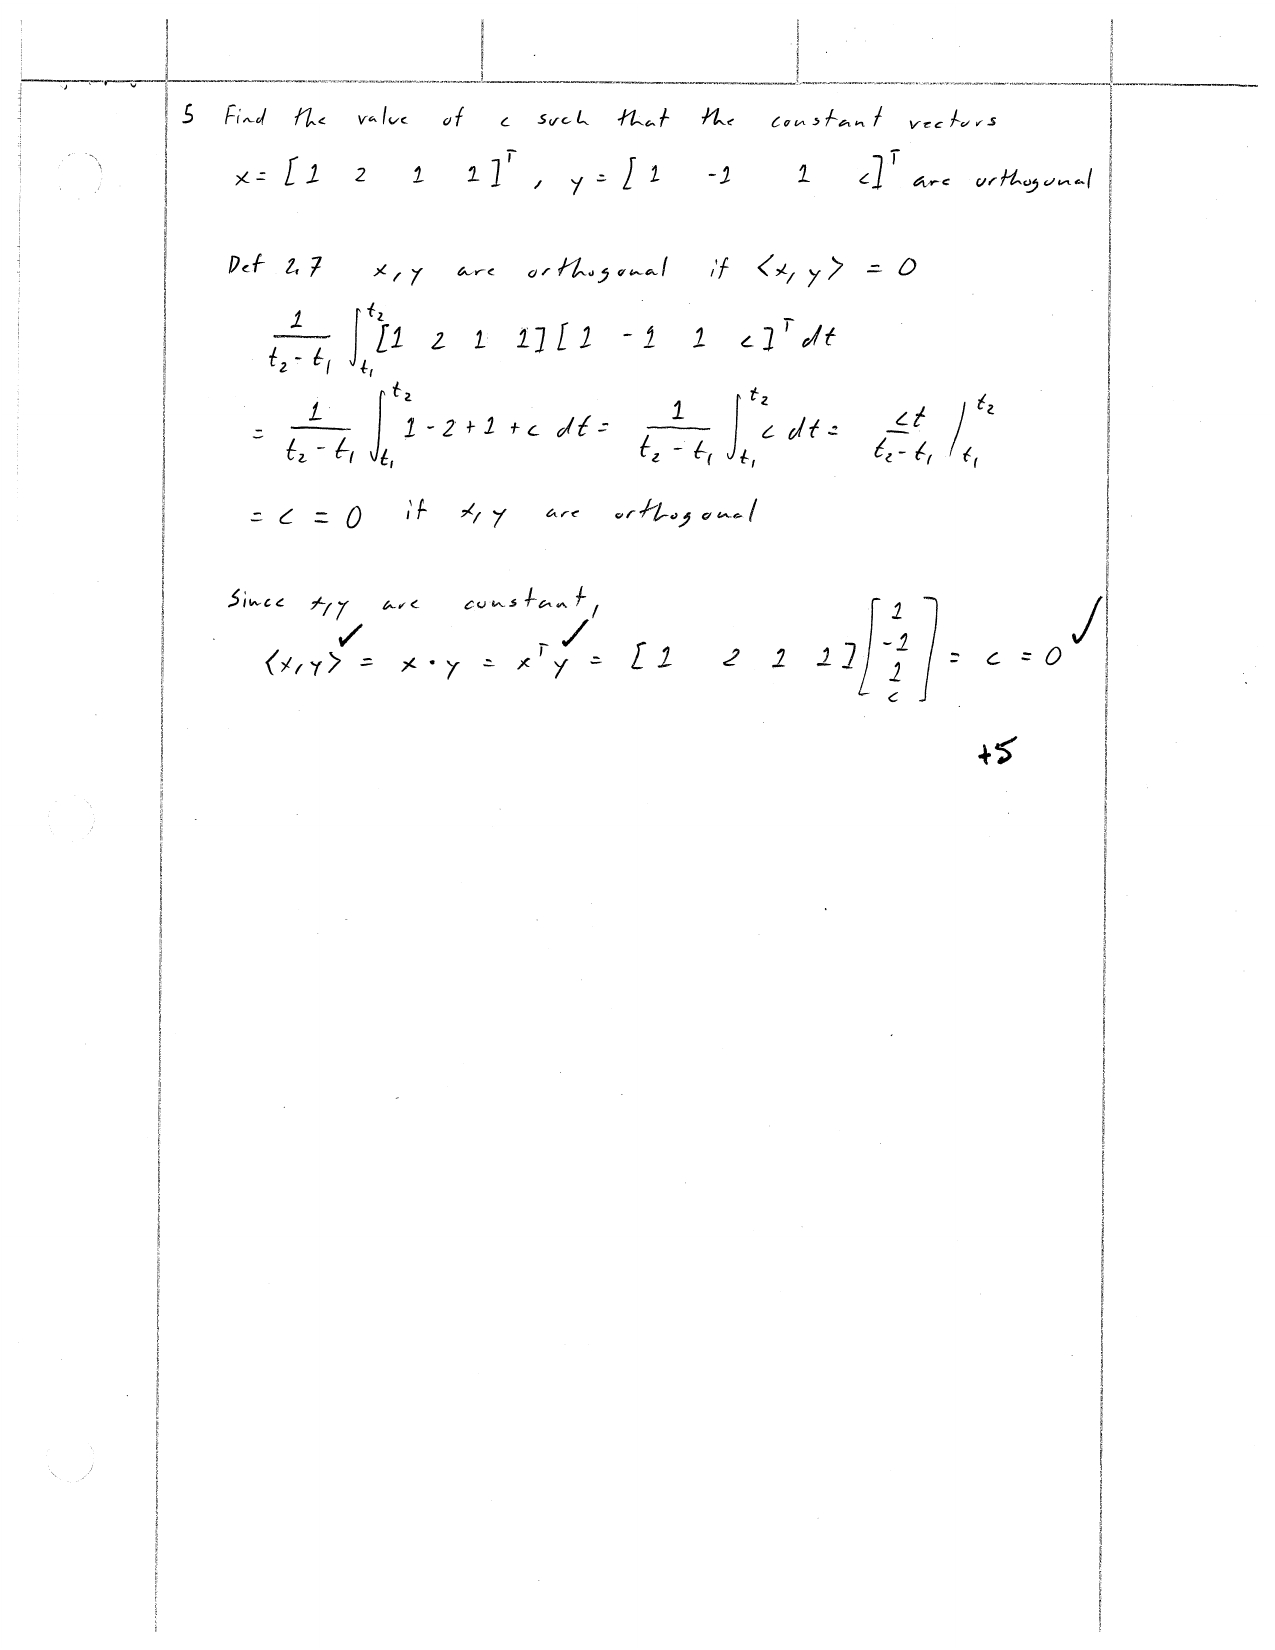 5 Find the value of c such that the constant vectors
x = [1 2 1 1]ᵀ, y = [1 -1 1 c]ᵀ are orthogonal
Def 2.7 x, y are orthogonal if <x, y> = 0
1/(t₂ - t₁) ∫_{t₁}^{t₂} [1 2 1 1][1 -1 1 c]ᵀ dt
= 1/(t₂ - t₁) ∫_{t₁}^{t₂} 1 - 2 + 1 + c dt = 1/(t₂ - t₁) ∫_{t₁}^{t₂} c dt = ct/(t₂ - t₁) |_{t₁}^{t₂}
= c = 0 if x, y are orthogonal
Since x, y are constant,
<x, y> ✓ = x · y = xᵀy ✓ = [1 2 1 1] [1 -1 1 c]ᵀ = c = 0 ✓
+5